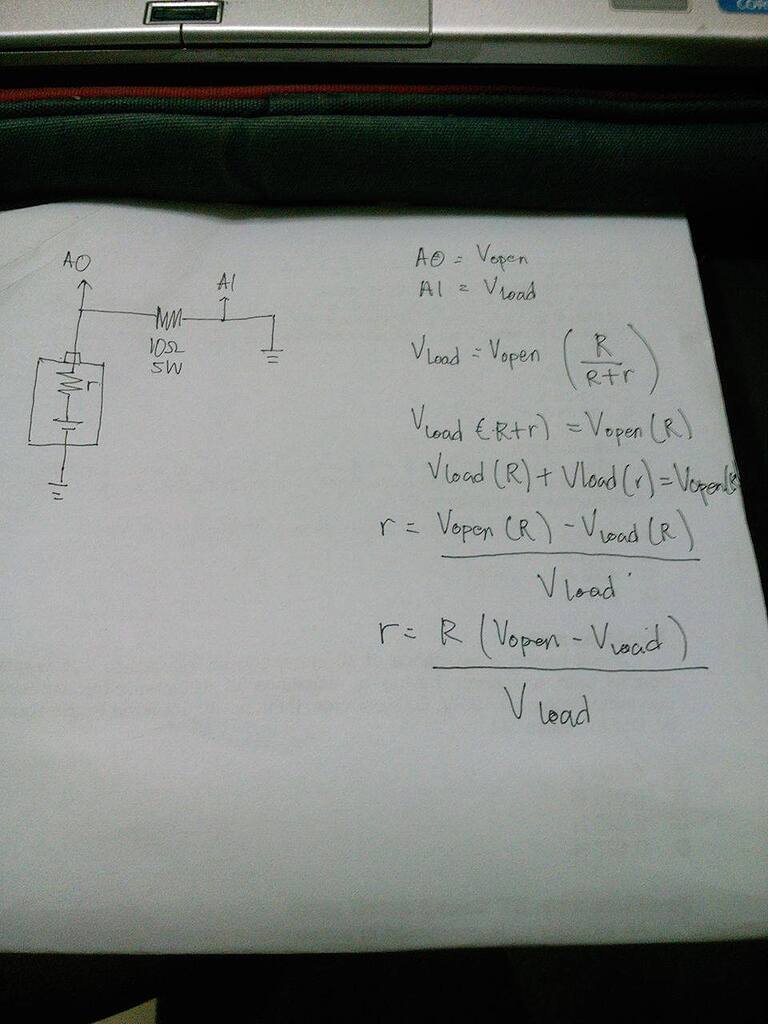 COR
A0
A1
10Ω
5W
r
A0 = Vopen
A1 = Vload
Vload = Vopen (R / R+r)
Vload (R+r) = Vopen(R)
Vload(R) + Vload(r) = Vopen(R
r = Vopen(R) - Vload(R)
Vload
r = R (Vopen - Vload)
Vload